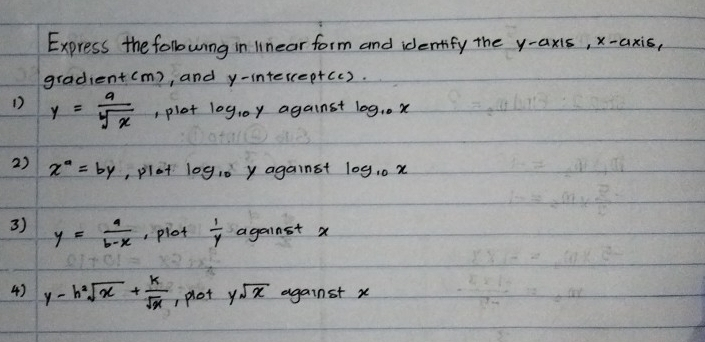 Express the following in linear form and identify the y-axis, x-axis,
gradient (m), and y-intercept (c).
1) y = a/ᵇ√x, plot log₁₀ y against log₁₀ x
2) xᵃ = by, plot log₁₀ y against log₁₀ x
3) y = a/(b-x), plot 1/y against x
4) y - h²√x + k/√x, plot y√x against x